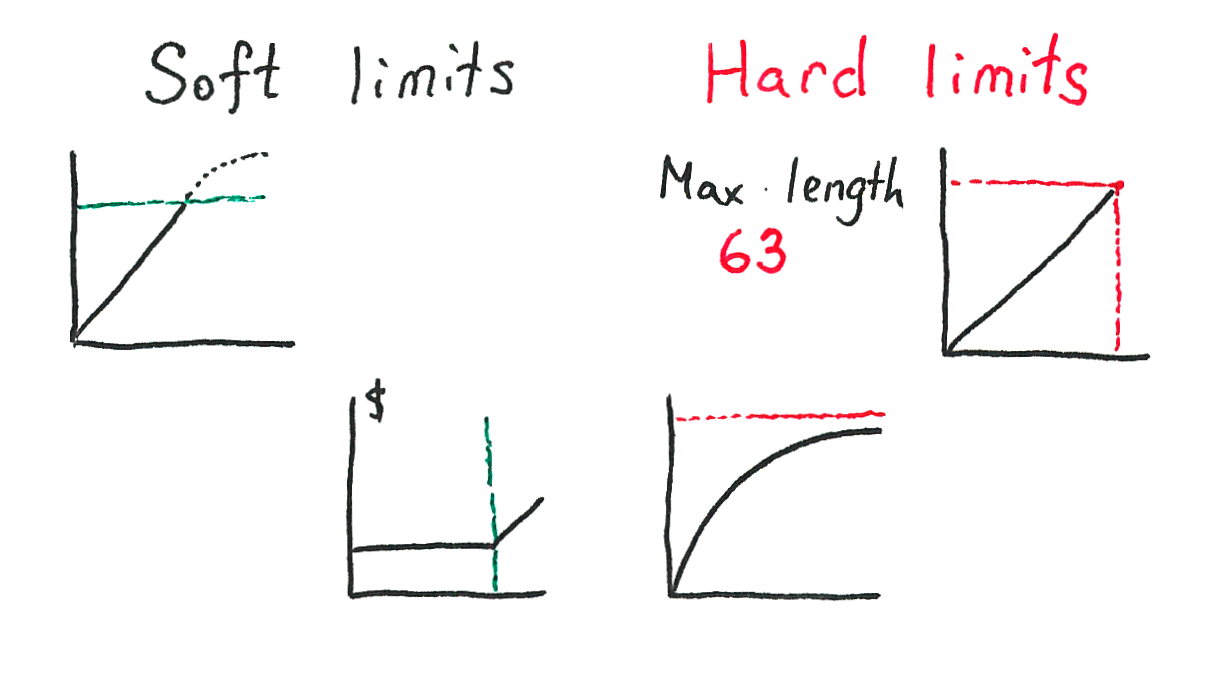 Soft limits
Hard limits
Max. length
63
$